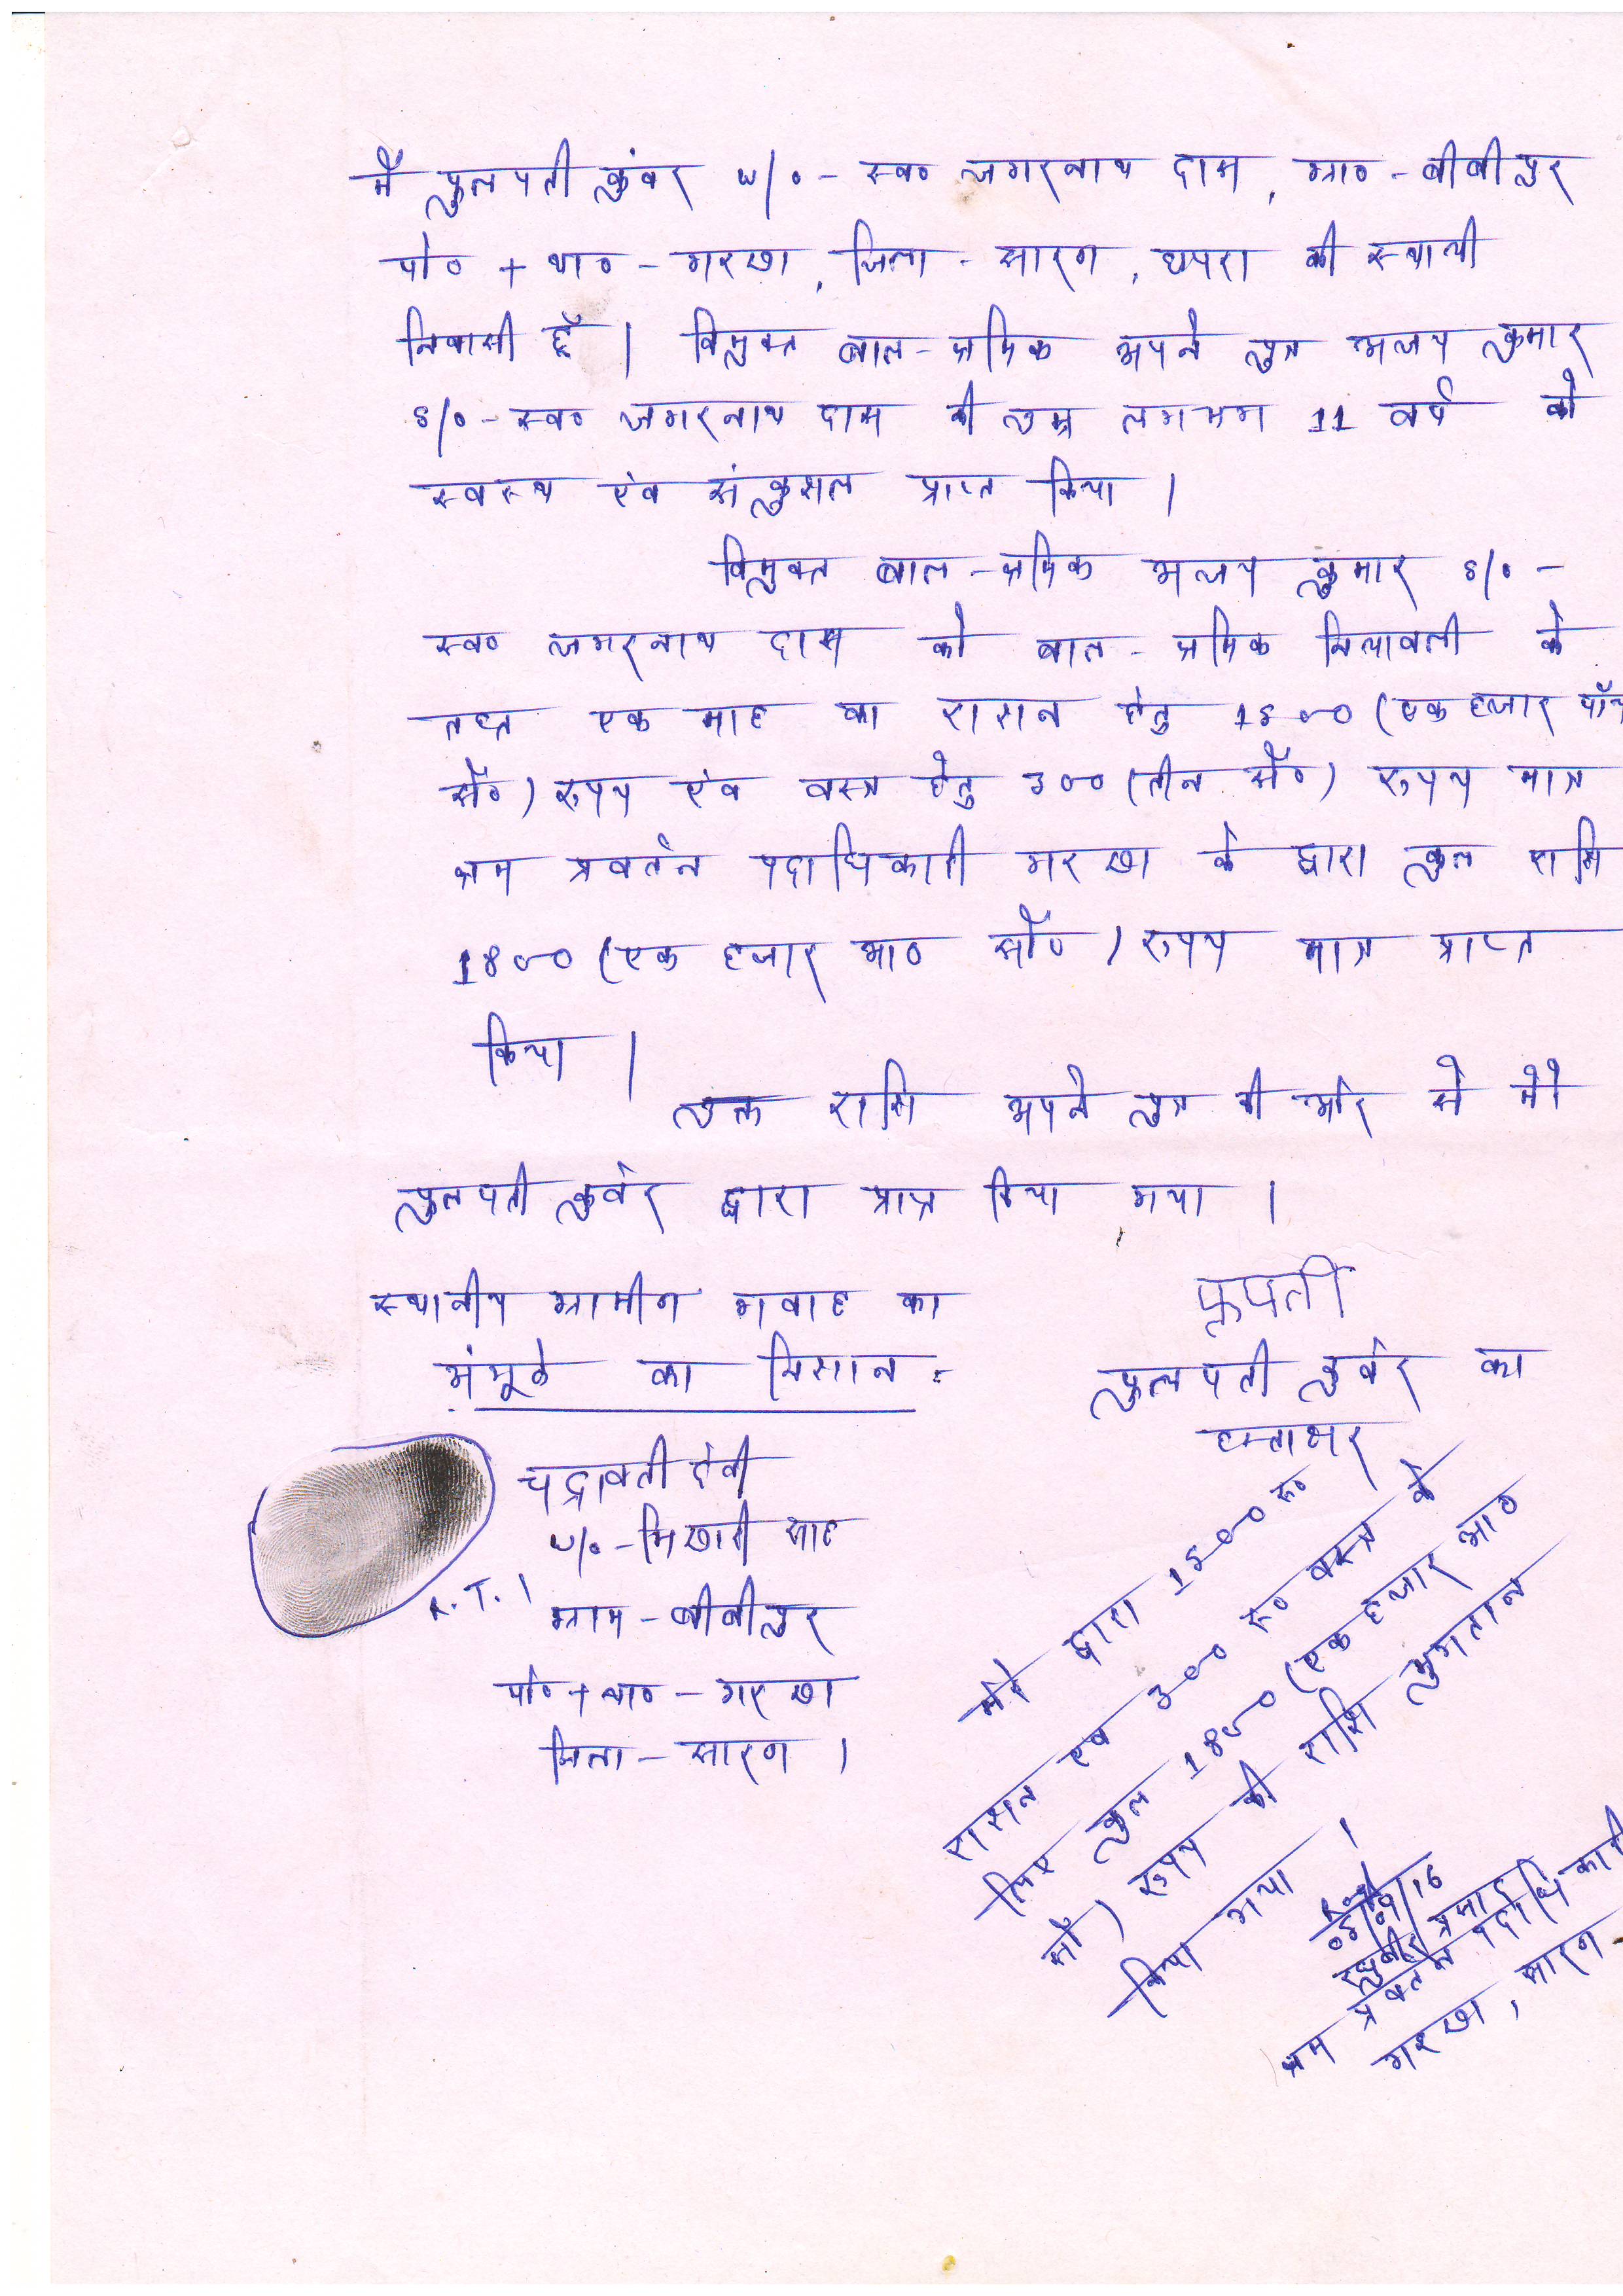 मैं फुलपती कुंवर w/o - स्व० जगरनाथ दास, ग्रा० - बीबीपुर
पो० + था० - गरखा, जिला - सारण, छपरा की स्थायी
निवासी हूँ । विमुक्त बाल-श्रमिक अपने पुत्र अजय कुमार
s/o - स्व० जगरनाथ दास की उम्र लगभग 11 वर्ष को
स्वस्थ एंव संकुसल प्राप्त किया ।
विमुक्त बाल-श्रमिक अजय कुमार s/o -
स्व० जगरनाथ दास को बाल-श्रमिक नियावली के
तहत एक माह का रासन हेतु 1500 (एक हजार पाँच
सौ०) रुपय एंव वस्त्र हेतु 300 (तीन सौ०) रुपय मात्र
श्रम प्रवर्तन पदाधिकारी गरखा के द्वारा कुल राशि
1800 (एक हजार आठ सौ०) रुपय मात्र प्राप्त
किया ।
उक्त राशि अपने पुत्र की ओर से मेरे
फुलपती कुवंर द्वारा प्राप्त किया गया ।
स्थानीय ग्रामीण गवाह का
अंगूठे का निसान :-
फूपती
फुलपती कुवंर का
हस्ताक्षर
चद्रावती देवी
w/o - भिखारी साह
R.T.I
ग्राम - बीबीपुर
पो० + था० - गरखा
जिला - सारण ।
मेरे द्वारा 1500 रू०
रासन एंव 300 रू० वस्त्र के
लिए कुल 1800 (एक हजार आठ
सौ) रुपय की राशि भुगतान
किया गया ।
05/09/16
रघुबीर प्रसाद
श्रम प्रवर्तन पदाधिकारी
गरखा, सारण